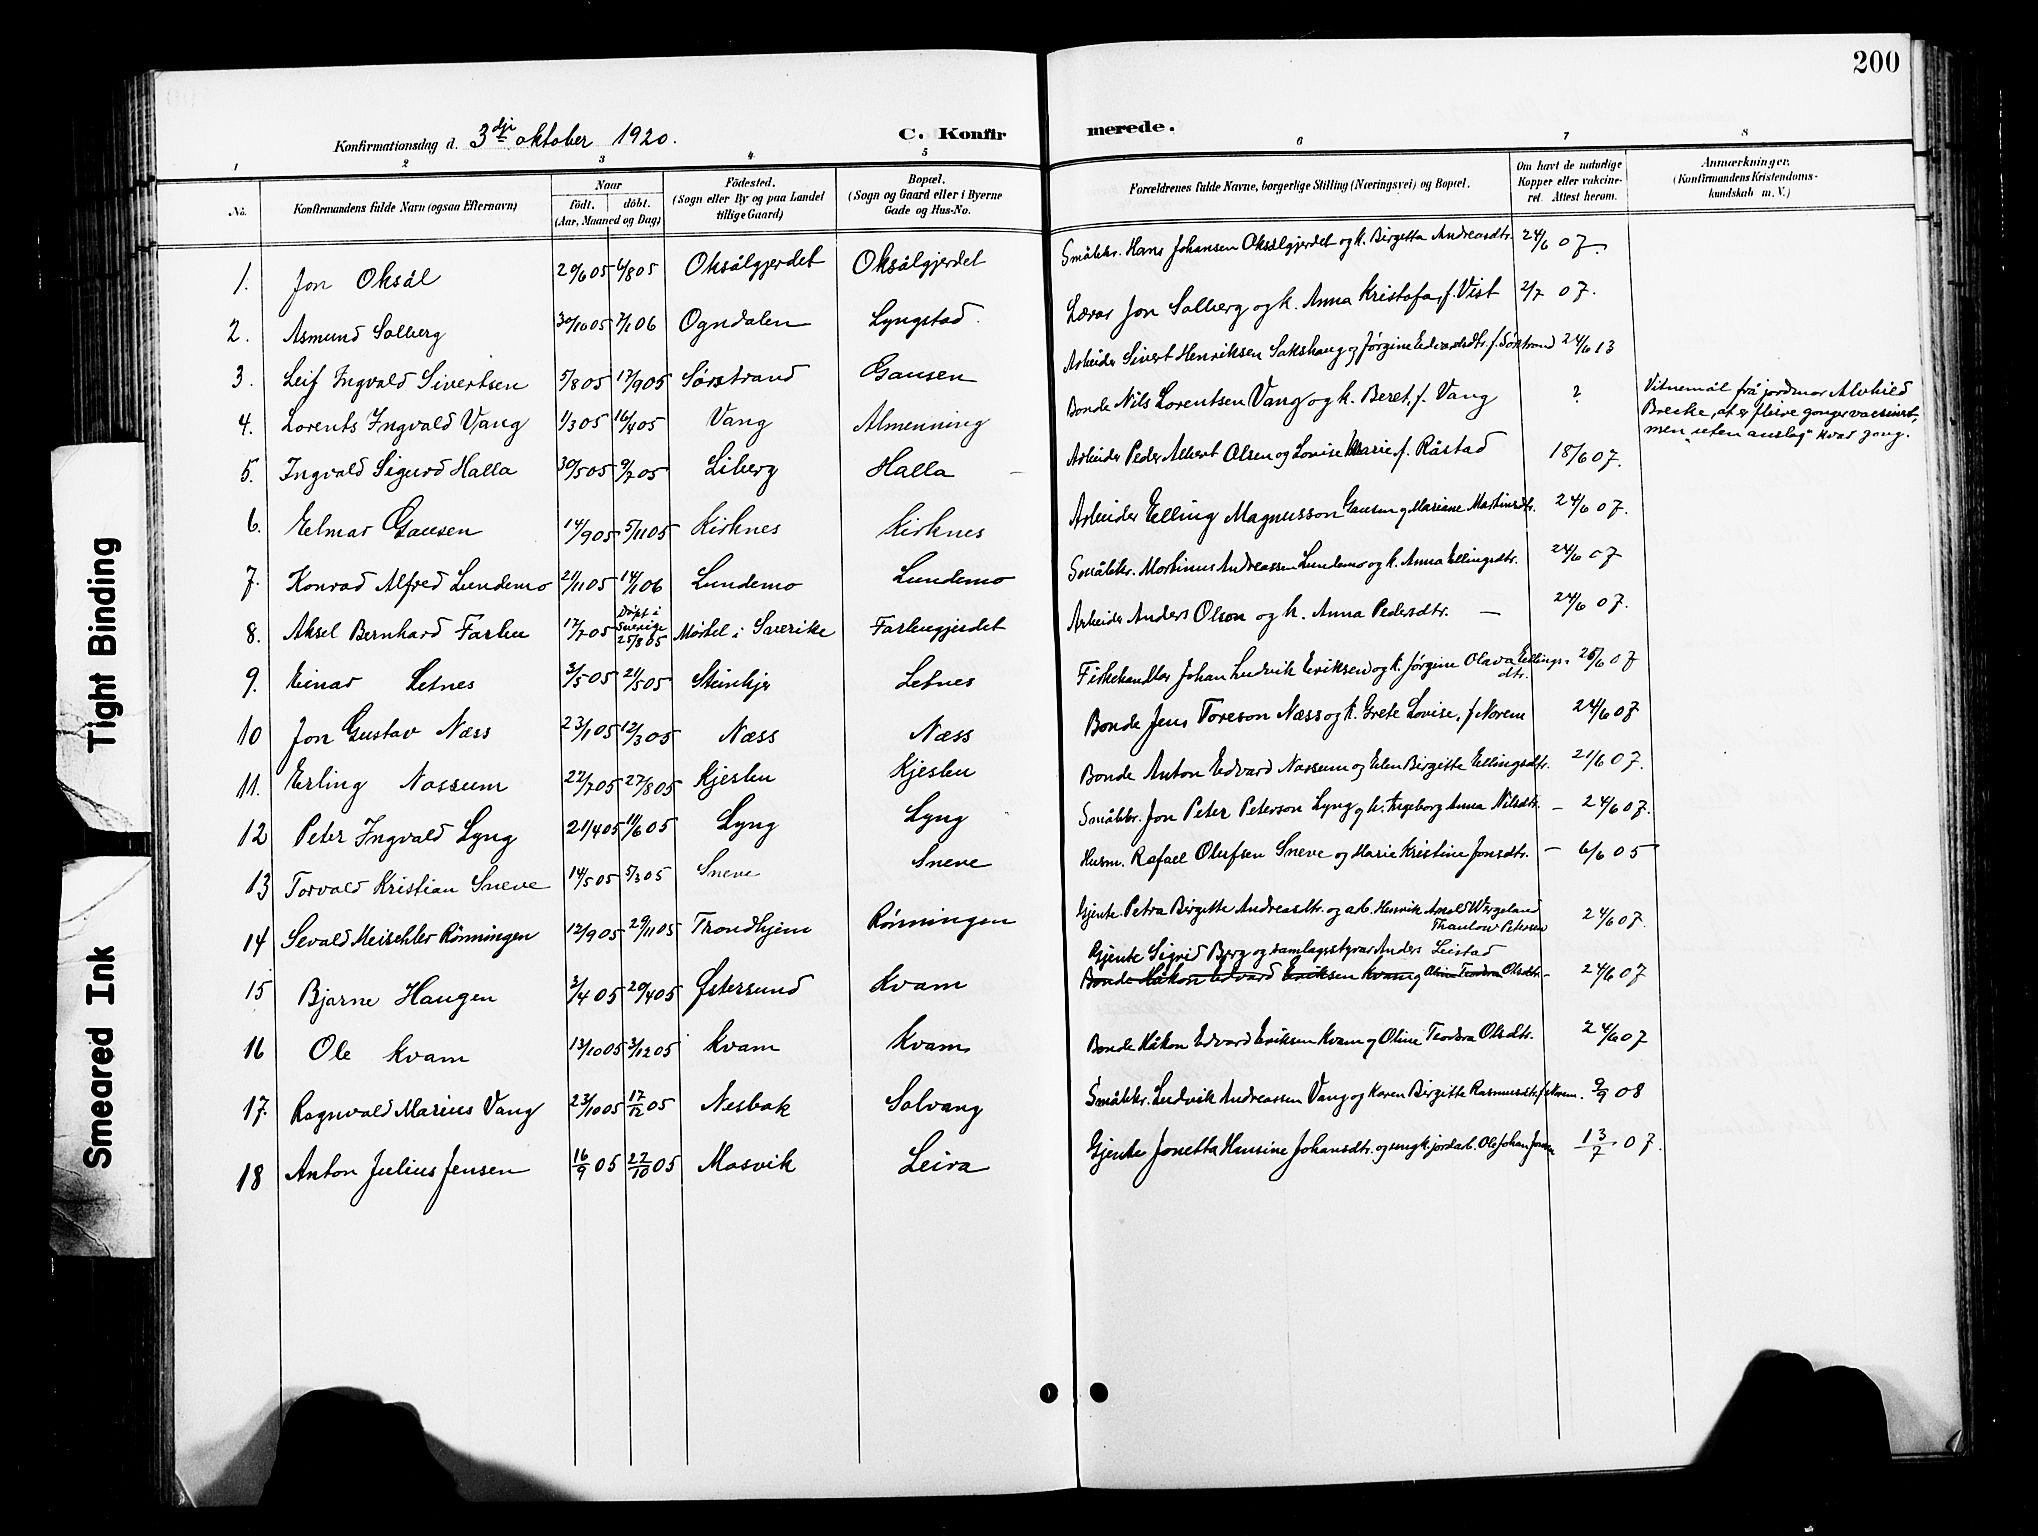 200
Konfirmationsdag d. 3dje oktober 1920.
C. Konfirmerede.
1 2 3 4 5 6 7 8
No. Konfirmandens fulde Navn (ogsaa Efternavn) Naar født. døbt. (Aar, Maaned og Dag) Fødested. (Sogn eller By og paa Landet tillige Gaard) Bopæl. (Sogn og Gaard eller i Byerne Gade og Hus-No. Forældrenes fulde Navne, borgerlige Stilling (Næringsvei) og Bopæl. Om havt de naturlige Kopper eller vakcineret. Attest herom. Anmærkninger. (Konfirmandens Kristendomskundskab m. V.)
1. Jon Oksål 20/6 05 6/8 05 Oksålgjerdet Oksålgjerdet Småbkr. Hans Johansen Oksålgjerdet og k. Birgetta Andreasdtr. 24/6 07.
2. Asmund Solberg 30/10 05 7/1 06 Ogndalen Lyngstad Lærar Jon Solberg og k. Anna Kristofa, f. Vist 2/7 07.
3. Leif Ingvald Sivertsen 5/8 05 17/9 05 Sørstrand Gausen Arbeider Sivert Henriksen Sakshaug og Jørgine Edvardsdtr. f. Sørstrand 24/6 13
4. Lorents Ingvald Vang 1/3 05 16/4 05 Vang Almenning Bonde Nils Lorentsen Vang og k. Beret, f. Vang ? Vitnemål frå jordmor Alvhild
Brecke, at er fleire gonger vaccinert,
men "uten anslag" kvar gong.
5. Ingvald Sigurd Halla 30/5 05 9/7 05 Liberg Halla Arbeider Peder Albert Olsen og Lovise Marie f. Råstad 18/6 07.
6. Elmar Gausen 14/9 05 5/11 05 Kirknes Kirknes Arbeider Elling Magnusson Gausen og Mariane Martinsdtr. 24/6 07.
7. Konrad Alfred Lundemo 21/11 05 14/1 06 Lundemo Lundemo Småbkr. Martinus Andreassen Lundemo og k. Anna Ellingsdtr. 24/6 07
8. Aksel Bernhard Farbu 17/7 05 Døpt i Sverige 25/8 05 Mørtel i Sverike Farbugjerdet Arbeider Anders Olson og k. Anna Pedersdtr. — 24/6 07.
9. Einar Letnes 3/5 05 21/5 05 Steinkjer Letnes Fiskehandlar Johan Ludvik Eriksen og k. Jørgine Olava Ellingsdtr. 25/6 07
10 Jon Gustav Næss 23/1 05 12/3 05 Næss Næss Bonde Jens Toreson Næss og k. Grete Lovise, f. Norem 24/6 07
11. Erling Nossum 22/7 05 27/8 05 Kjeslen Kjeslen Bonde Anton Edvard Nossum og Elen Birgitte Ellingsdtr. 21/6 07.
12 Peter Ingvald Lyng 21/4 05 11/6 05 Lyng Lyng Småbkr. Jon Peter Peterson Lyng og k. Ingeborg Anna Nilsdtr. — 24/6 07.
13 Torvald Kristian Sneve 14/5 05 5/3 05 Sneve Sneve Husm. Rafael Olufsen Sneve og Marie Kristine Jonsdtr. — 6/6 05
14 Sevald Meischler Rønningen 12/9 05 29/11 05 Trondhjem Rønningen Gjente Petra Birgette Andreasdtr. og arb. Henrik Arnold Wergeland Thaulow Petersen 24/6 07.
Gjente Sigrid Berg og samlagsstyrar Anders Leistad
15 Bjarne Haugen 3/4 05 20/4 05 Østersund Kvam Bonde Håkon Edvard Eriksen Kvam og Oline Teodora Olsdtr. — 24/6 07
16 Ole Kvam 13/10 05 3/12 05 Kvam Kvam Bonde Håkon Edvard Eriksen Kvam og Oline Teodora Olsdtr. 24/6 07
17. Ragnvald Marius Vang 23/10 05 17/12 05 Nesbak Solvang Småbkr. Ludvik Andreassen Vang og Karen Birgitte Rasmusdtr. f. Norem. 9/9 08
18 Anton Julius Jensen 16/9 05 22/10 05 Mosvik Leira Gjente Jonetta Hansine Johansdtr. og ungk. jordarb. Ole Johan Jensen 13/7 07.
Tight Binding
Smeared Ink